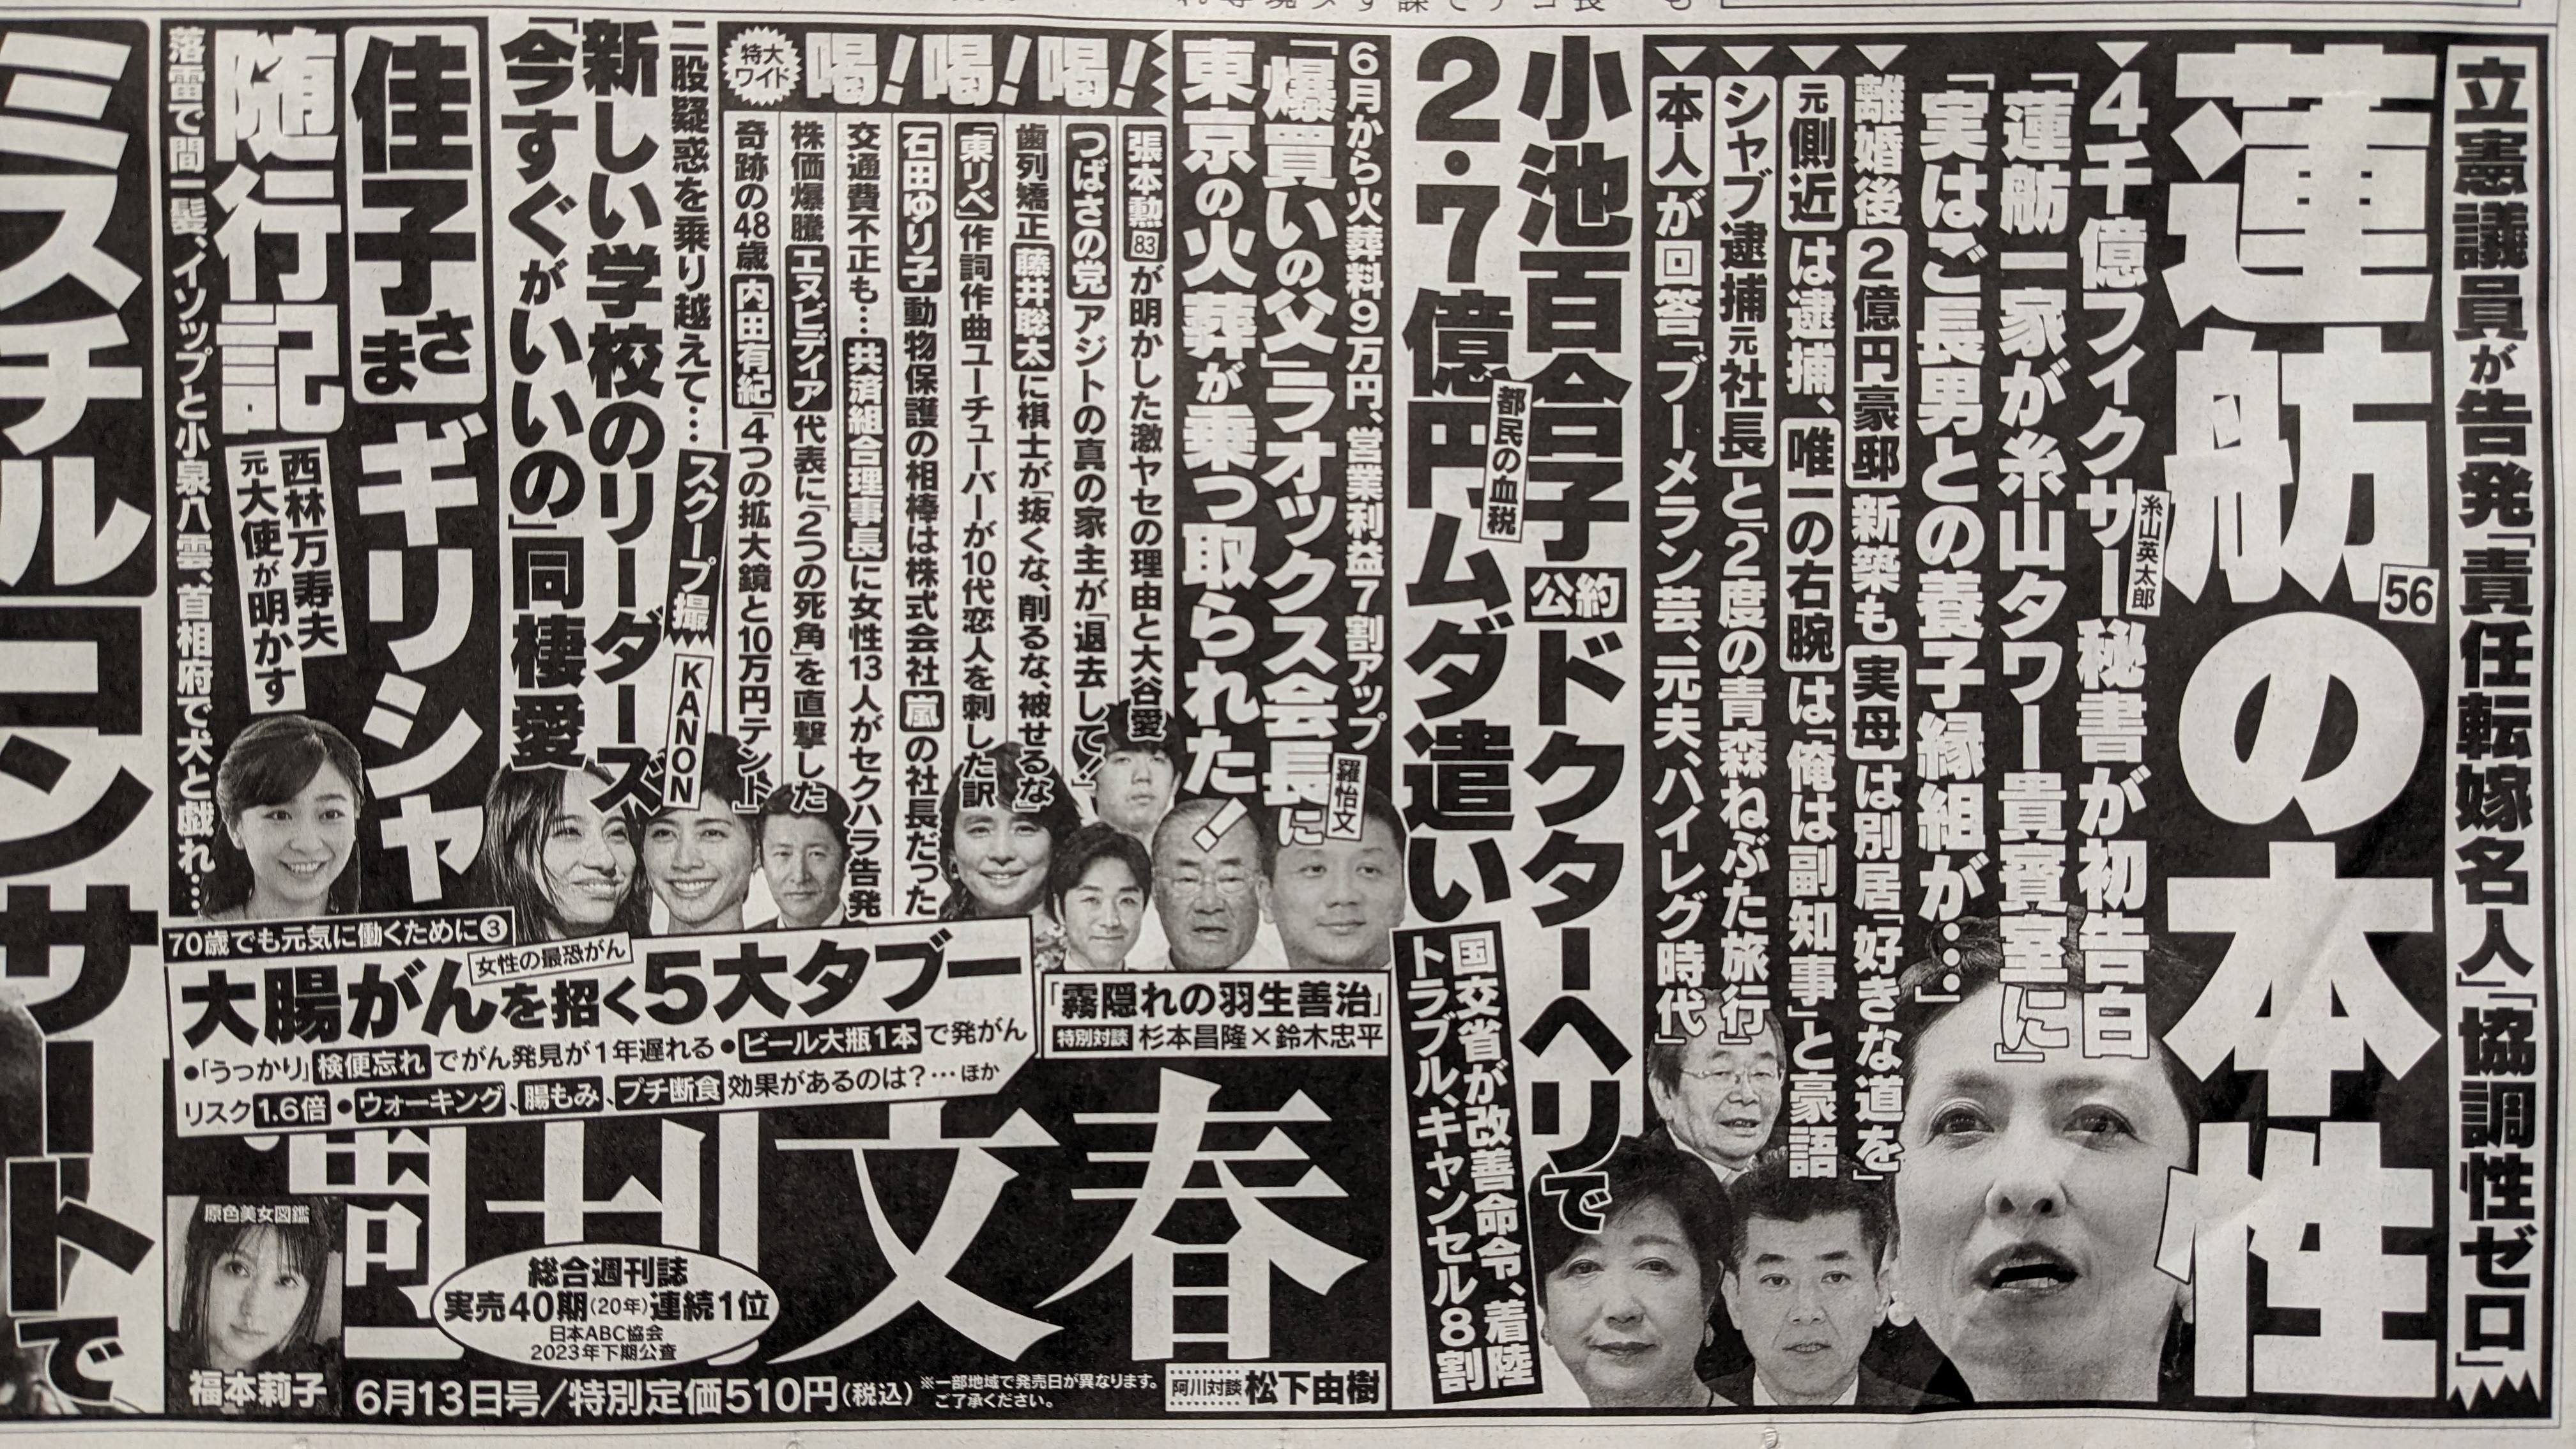 立憲議員が告発「責任転嫁名人」「協調性ゼロ」
蓮舫の本性
56
▽4千億フィクサー秘書が初告白
糸山英太郎
「蓮舫一家が糸山タワー貴賓室に」
「実はご長男との養子縁組が…」
▽離婚後2億円豪邸新築も実母は別居「好きな道を」
▽元側近は逮捕、唯一の右腕は「俺は副知事」と豪語
▽シャブ逮捕元社長と「2度の青森ねぶた旅行」
▽本人が回答「ブーメラン芸、元夫、ハイレグ時代」
小池百合子公約ドクターヘリで
都民の血税
2・7億円ムダ遣い
国交省が改善命令、着陸
トラブル、キャンセル8割
6月から火葬料9万円、営業利益7割アップ
「爆買いの父」ラオックス会長に
羅怡文
東京の火葬が乗っ取られた!
特大
ワイド
喝!喝!喝!
張本勲83が明かした激ヤセの理由と大谷愛
つばさの党アジトの真の家主が「退去して!」
歯列矯正藤井聡太に棋士が「抜くな、削るな、被せるな」
「東リベ」作詞作曲ユーチューバーが10代恋人を刺した訳
石田ゆり子動物保護の相棒は株式会社嵐の社長だった
交通費不正も…共済組合理事長に女性13人がセクハラ告発
株価爆騰エヌビディア代表に「2つの死角」を直撃した
奇跡の48歳内田有紀「4つの拡大鏡と10万円テント」
二股疑惑を乗り越えて…スクープ撮
KANON
新しい学校のリーダーズ
「今すぐがいいの」同棲愛
佳子さまギリシャ
随行記
西林万寿夫
元大使が明かす
落雷で間一髪、イソップと小泉八雲、首相府で犬と戯れ…
ミスチルコンサートで
70歳でも元気に働くために❸
女性の最恐がん
大腸がんを招く5大タブー
●「うっかり」検便忘れでがん発見が1年遅れる●ビール大瓶1本で発がん
リスク1.6倍●ウォーキング、腸もみ、プチ断食効果があるのは?…ほか
「霧隠れの羽生善治」
特別対談 杉本昌隆×鈴木忠平
週刊文春
原色美女図鑑
福本莉子
総合週刊誌
実売40期(20年)連続1位
日本ABC協会
2023年下期公査
6月13日号/特別定価510円(税込)
※一部地域で発売日が異なります。
ご了承ください。
阿川対談 松下由樹